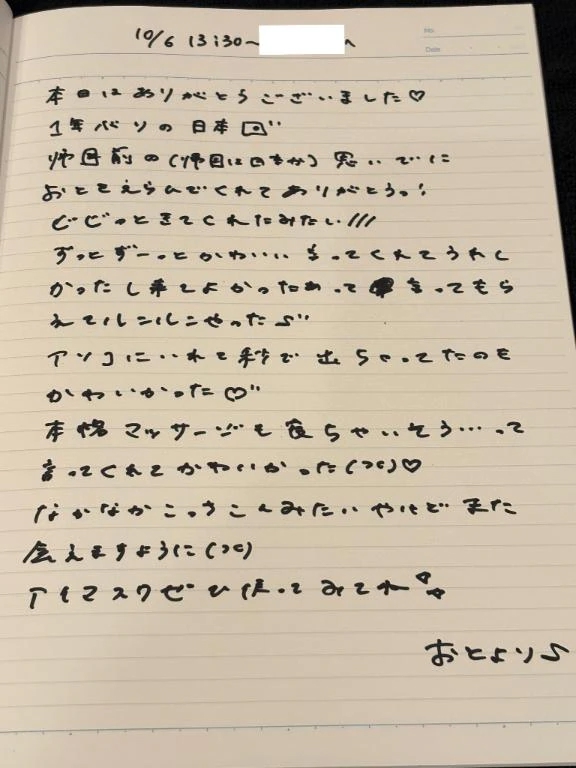 10/6 13:30〜 へ
No.
Date
本日はありがとうございました♡
1年ぶりの日本
帰国前の(帰国は日本か)思いでに
おとをえらんでくれてありがとうっ!
どじっときてくれたみたい///
ずっとずーっとかわいい言ってくれてうれし
かったし来てよかったぁって言ってもら
えてルンルンやった♪"
アソコにいれて秒で出ちゃってたのも
かわいかった♡"
本格マッサージも寝ちゃいそう…って
言ってくれてかわいかった()♡
なかなかこっちこんみたいやけどまた
会えますように()
アイマスクぜひ使ってみてね
おとより♪